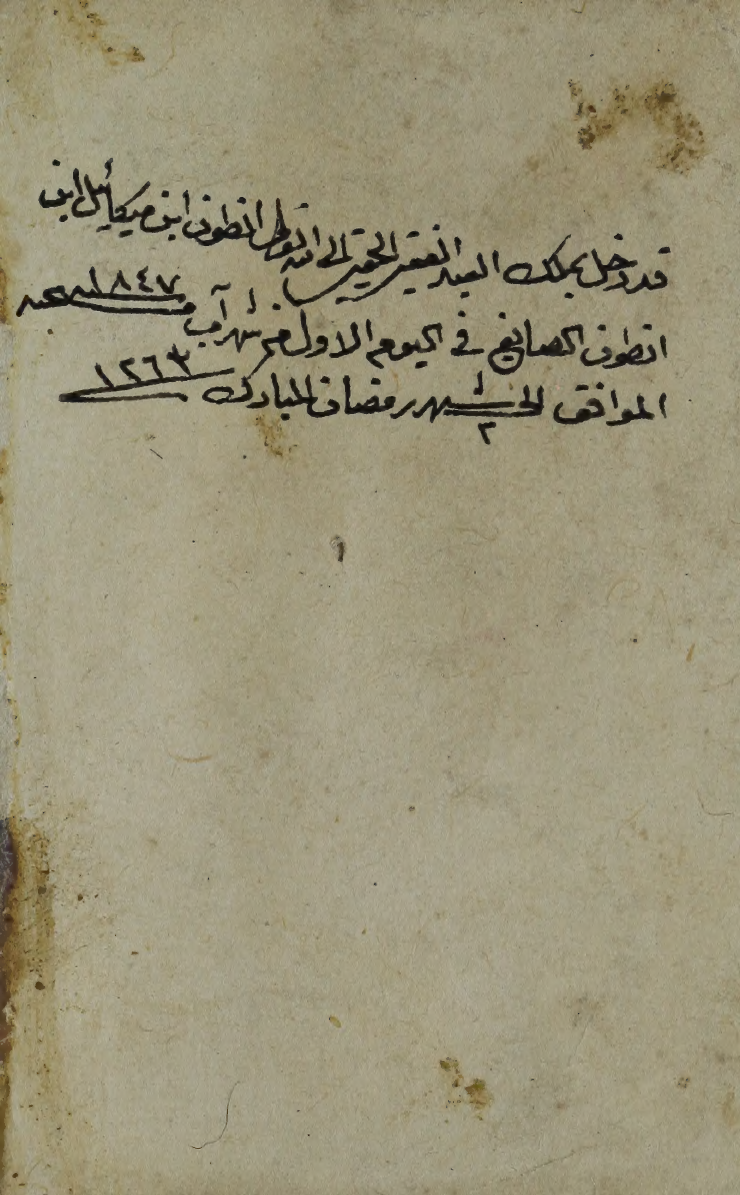 قد دخل بملك العبد الفقير الحقير الى الله انطون ابن ميكائيل ابن
انطون الصايغ في اليوم الاول من شهر آب سنة ١٨٤٧ مسيحية
الموافق الى شهر رمضان المبارك سنة ١٢٦٣